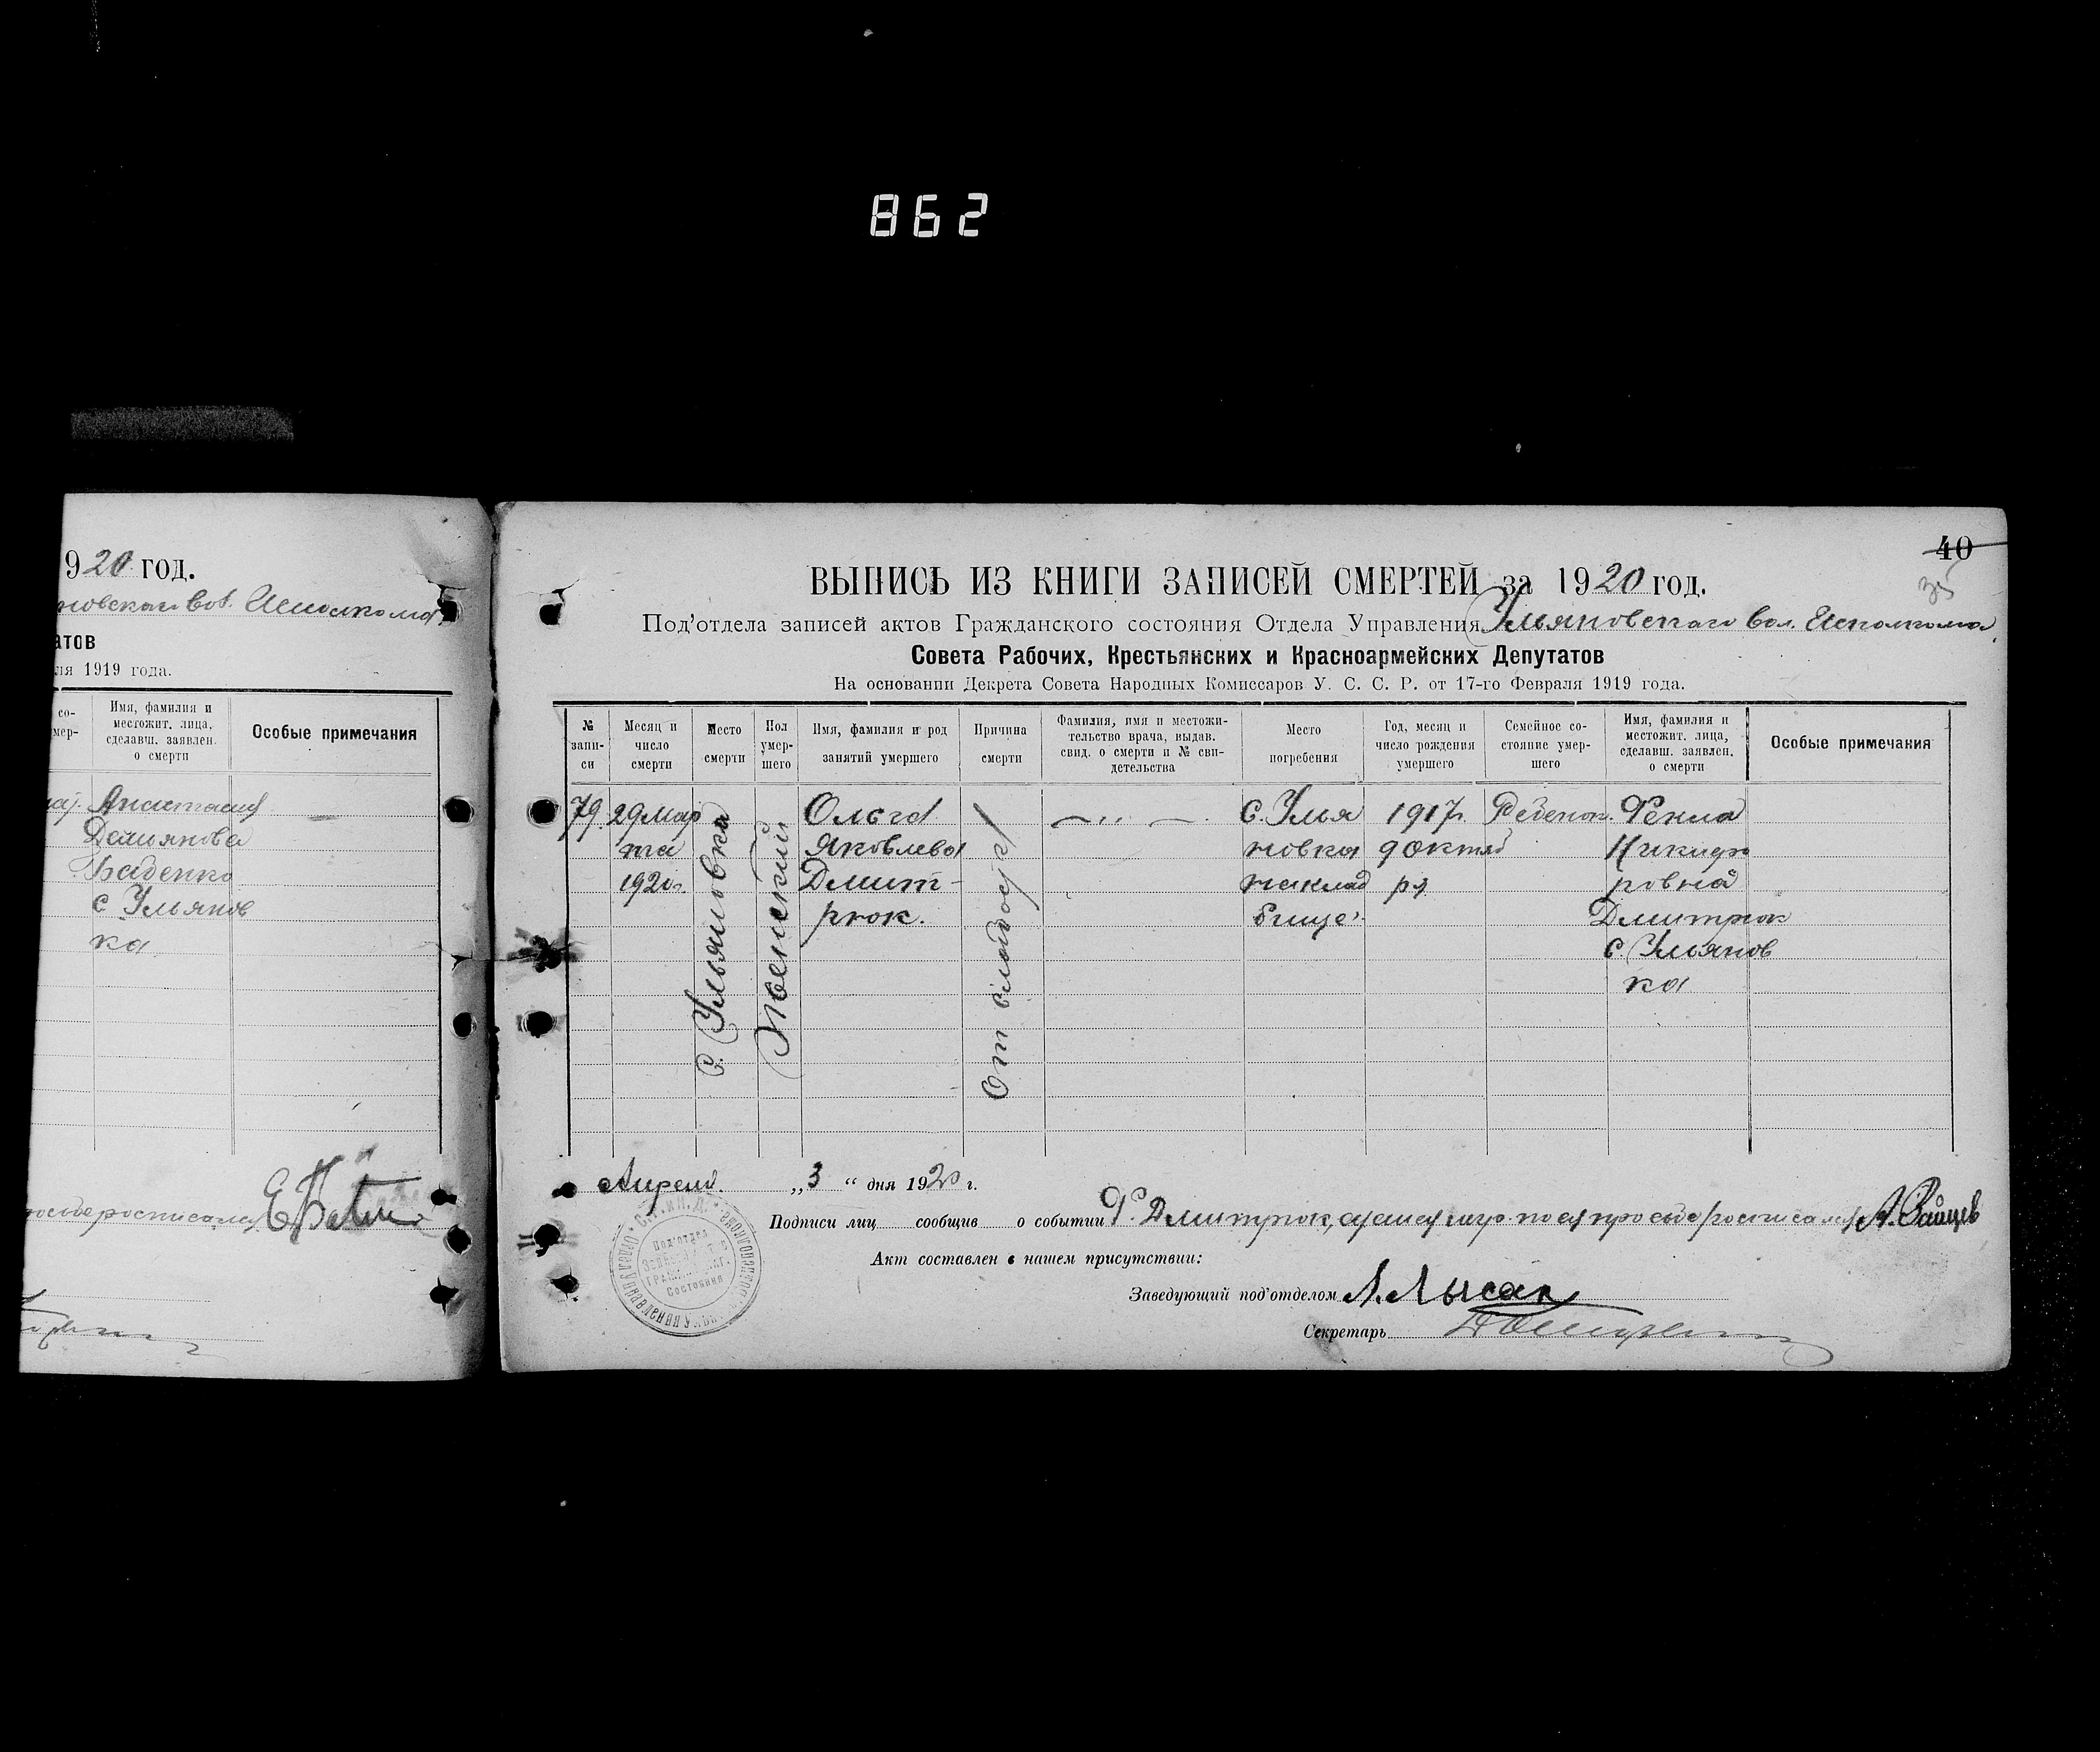 862
920 год.
новскаго Вол. Исполкома
атов
ля 1919 года.
со-
мер-
Имя, фамилия и
местожит. лица,
сделавш. заявлен.
о смерти
Особые примечания
Анастасия
Демиянова
Бабенко
с Ульянов
ка
40
35
ВЫПИСЬ ИЗ КНИГИ ЗАПИСЕЙ СМЕРТЕЙ за 1920 год.
Под'отдела записей актов Гражданского состояния Отдела Управления Ульяновскаго Вол. Исполкома
Совета Рабочих, Крестьянских и Красноармейских Депутатов
На основании Декрета Совета Народных Комиссаров У. С. С. Р. от 17-го Февраля 1919 года.
№
запи-
си
Месяц и
число
смерти
Место
смерти
Пол
умер-
шего
Имя, фамилия и род
занятий умершего
Причина
смерти
Фамилия, имя и местожи-
тельство врача, выдав.
свид. о смерти и № сви-
детельства
Место
погребения
Год, месяц и
число рождения
умершего
Семейное со-
стояние умер-
шего
Имя, фамилия и
местожит. лица,
сделавш. заявлен.
о смерти
Особые примечания
79.
29 Мар
та
1920г.
с. Ульяновка
Женский
Ольга
Яковлева
Дмит-
рюк.
От
с. Улья
новка
на клад
бище
1917г.
9 октяб
ря
Ребенок.
Фекла
Никифо
ровна
Дмитрюк
с. Ульянов
ка
Апреля „3“ дня 1920 г.
Подписи лиц сообщив о событии Ф. Дмитрюк, по ея просьбе росписался А. Зайцев
Акт составлен в нашем присутствии:
Заведующий под'отделом Л. Лысак
Секретарь
Под'отдел
Состояния